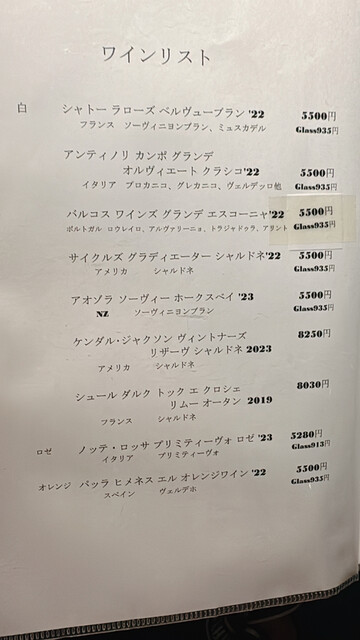 ワインリスト
白 シャトー ラローズ ベルヴューブラン '22 5500円
フランス ソーヴィニヨンブラン、ミュスカデル Glass935円
アンティノリ カンポ グランデ
オルヴィエート クラシコ'22 5500円
イタリア プロカニコ、グレカニコ、ヴェルデッロ他 Glass935円
バルコス ワインズ グランデ エスコーニャ'22 5500円
ポルトガル ロウレイロ、アルヴァリーニョ、トラジャドゥラ、アリント Glass935円
サイクルズ グラディエーター シャルドネ'22 5500円
アメリカ シャルドネ Glass935円
アオゾラ ソーヴィー ホークスベイ '23 5500円
NZ ソーヴィニヨンブラン Glass935円
ケンダル・ジャクソン ヴィントナーズ 8250円
リザーヴ シャルドネ 2023
アメリカ シャルドネ
シュール ダルク トック エ クロシェ 8030円
リムー オータン 2019
フランス シャルドネ
ロゼ ノッテ・ロッサ プリミティーヴォ ロゼ '23 5280円
イタリア プリミティーヴォ Glass913円
オレンジ パッラ ヒメネス エル オレンジワイン '22 5500円
スペイン ヴェルデホ Glass935円